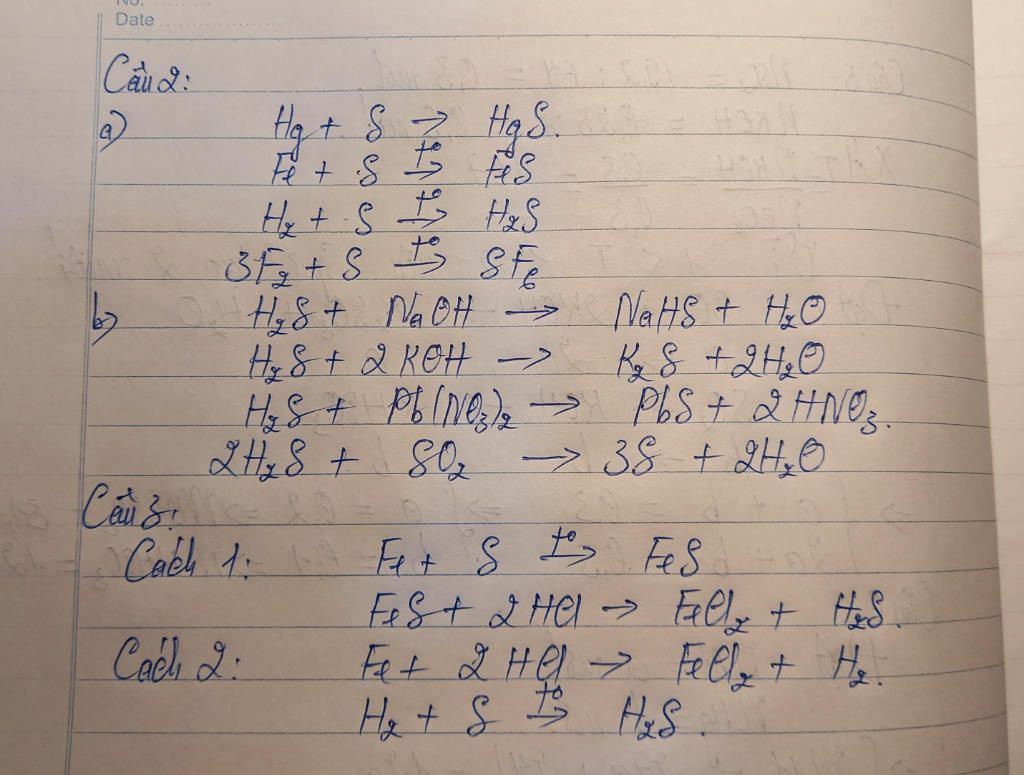 No. ..........
Date ..................
Câu 2:
a) Hg + S → HgS.
Fe + S t°→ FeS
H₂ + S t°→ H₂S
3F₂ + S t°→ SF₆
b) H₂S + NaOH → NaHS + H₂O
H₂S + 2KOH → K₂S + 2H₂O
H₂S + Pb(NO₃)₂ → PbS + 2HNO₃.
2H₂S + SO₂ → 3S + 2H₂O
Câu 3:
Cách 1: Fe + S t°→ FeS
FeS + 2HCl → FeCl₂ + H₂S.
Cách 2: Fe + 2HCl → FeCl₂ + H₂.
H₂ + S t°→ H₂S.